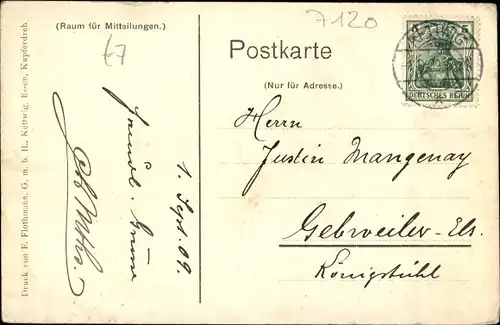 (Raum für Mitteilungen.)
7120
Postkarte
(Nur für Adresse.)
DEUTSCHES REICH
Herrn
Justin Mangenay
Gebweiler-Els.
Königstühl
1. Sept. 09.
Druck von F. Flothmann, G. m. b. H., Kettwig, Essen, Kupferdreh